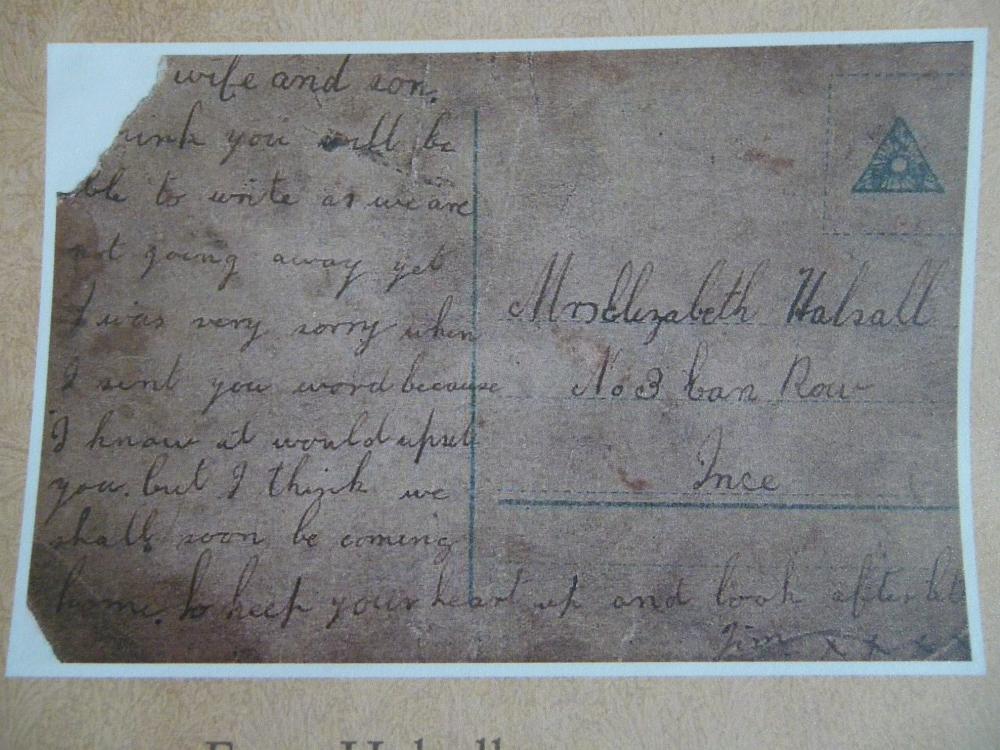 wife and son.
think you will be
able to write as we are
not going away yet
I was very sorry when
I sent you word because
I know it would upset
you. but I think we
shall soon be coming
home. so keep your heart up and look after
Jim x x x x
Mrs Elizabeth Halsall
No 3 Can Row
Ince